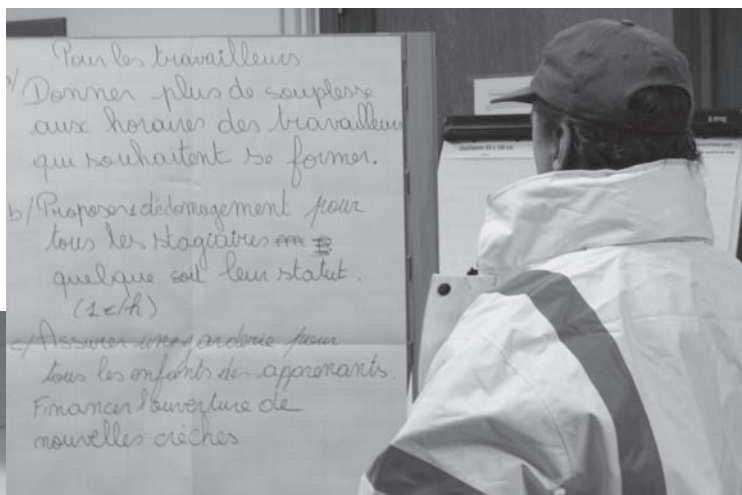 Pour les travailleurs
a/ Donner plus de souplesse
aux horaires des travailleurs
qui souhaitent se former.
b/ Proposer dédomagement pour
tous les stagiaires
quelque soit leur statut.
(1€/h)
c/ Assurer une garderie pour
tous les enfants des apprenants.
Financer l'ouverture de
nouvelles crèches